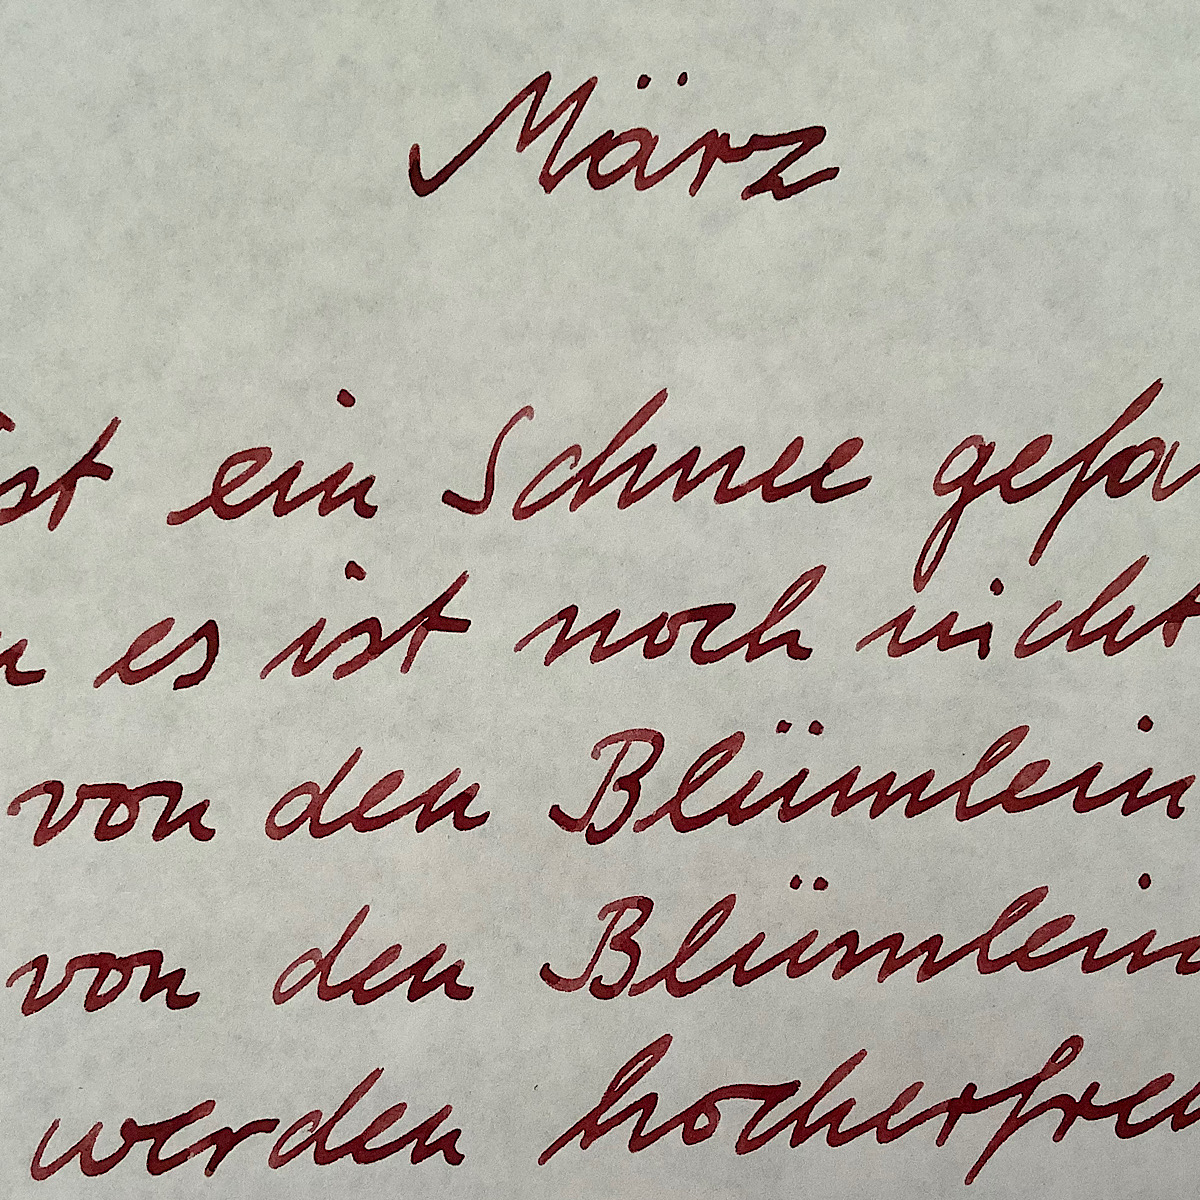 März
ist ein Schnee gefa
n es ist noch nicht
von den Blümlein
von den Blümlein
werden hocherfreu